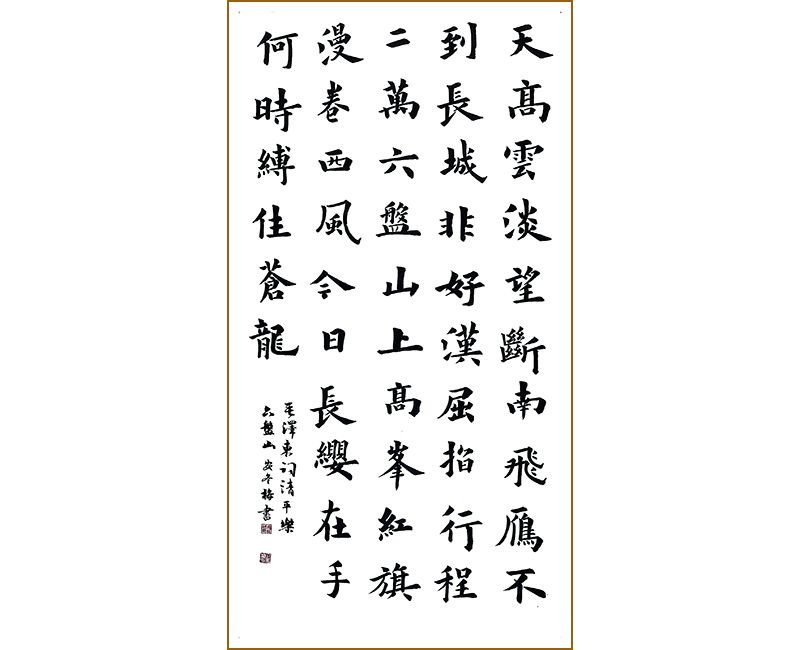 天髙雲淡望斷南飛雁不
到長城非好漢屈指行程
二萬六盤山上髙峯紅旗
漫卷西風今日長纓在手
何時縛住蒼龍
毛澤東词清平樂
六盤山 安冬梅書